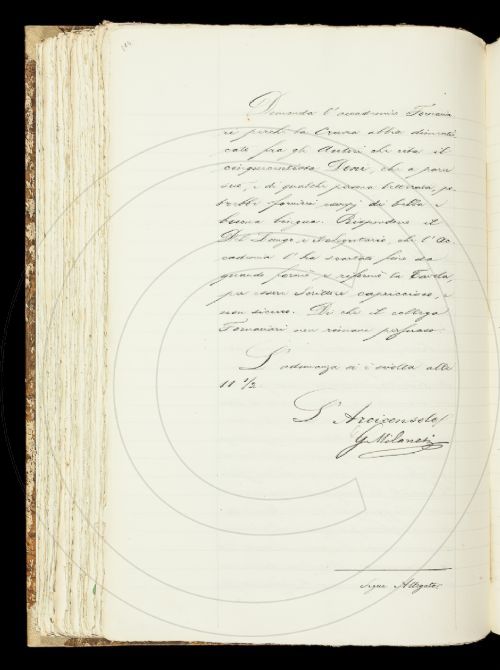 Domanda l'accademico Fornacia
ri perchè la Crusca abbia dimenti
cato fra gli Autori che cita il
cinquecentista Doni, che a parer
suo, e di qualche persona letterata, po
trebbe fornire esempj di bella e
buona lingua. Rispondono il
Del Lungo, e il Segretario, che l'Ac
cademia l'ha scartato fino da
quando formò e riformò la Tavola,
per essere Scrittore capriccioso, e
non sicuro. Di che il collega
Fornaciari non rimane persuaso.
L'adunanza si è sciolta alle
11 1/2
L'Arciconsolo
G. Milanesi
segue Allegato.